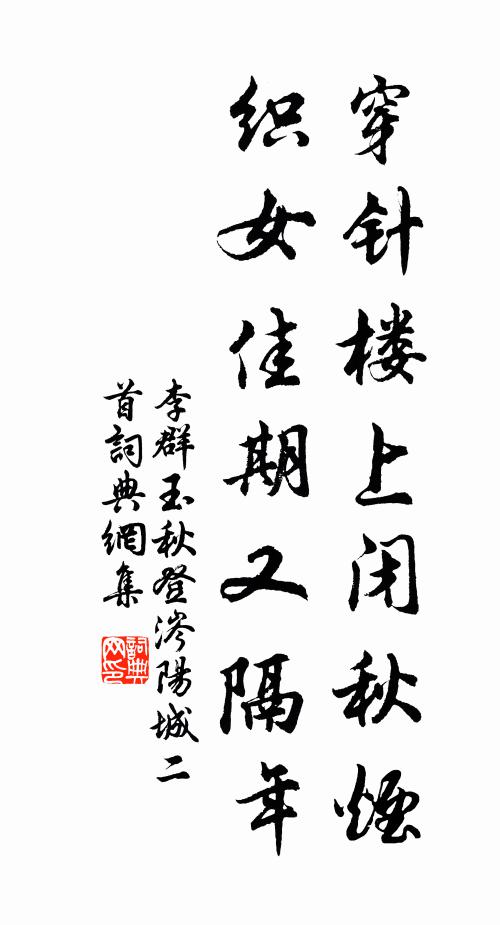 穿针楼上闭秋烟
织女佳期又隔年
李群玉秋登涔陽城二
首詞典網集
詞典
网印